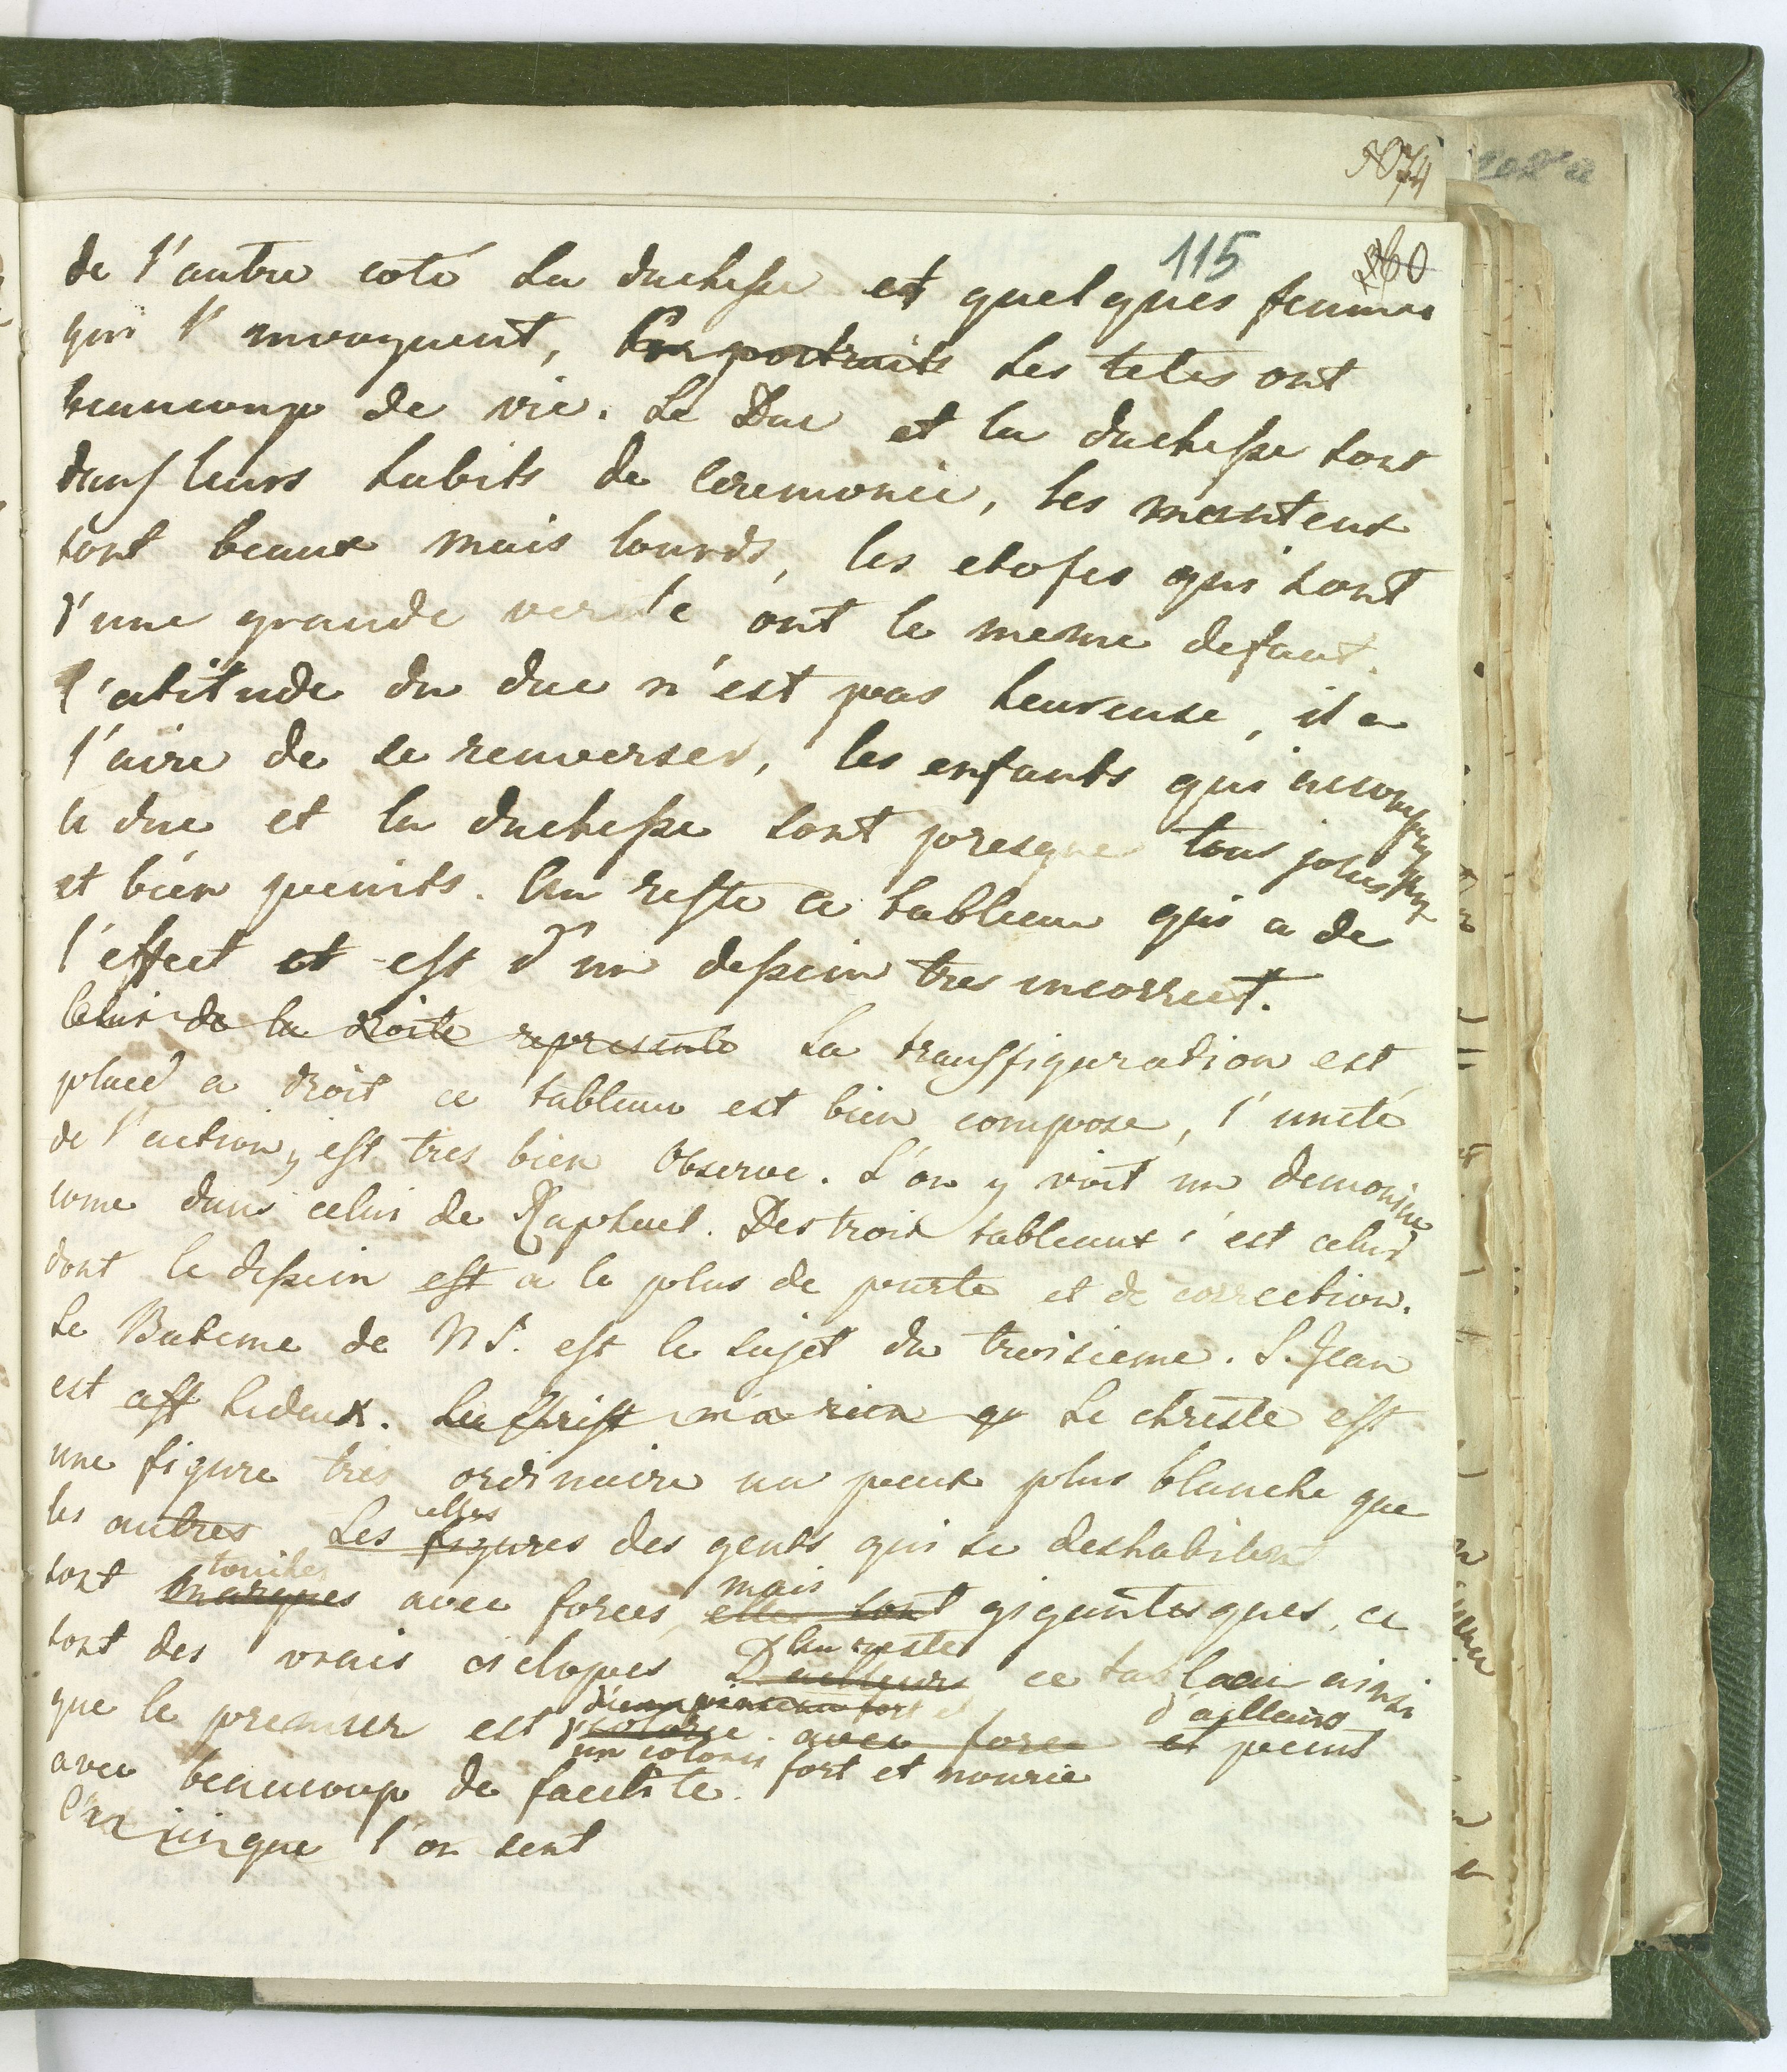 5074
115
260
de l'autre coté La duchesse et quelques femmes
qui l'invoquent, Ces portraits Les tetes ont
beaucoup de vie. Le Duc et la duchesse sont
dans leurs habits de ceremonie, les manteux
sont beaux mais lourds, les etofes qui sont
d'une grande verite ont le meme defaut.
L'atitude du duc n'est pas heureuse, il a
l'aire de se renverser, les enfants qui accompagnent
le duc et la duchesse sont presque tous jolies
et bien peints. Au reste ce tableau qui a de
l'effect et est d'un dessein tres incorrect.
Celui de la droite represente La transfiguration est
placé a droit ce tableau est bien compose, l'uneté
de l'action y est tres bien observe. L'on y voit un demonique
come dans celui de Raphael. Des trois tableaux c'est celui
dont le dessein est a le plus de purte et de correction.
Le Bateme de N S. est le sujet du troisieme. S. Jean
est est hideux. Le Christ n'a rien qu Le christe est
une figure tres ordinaire un peux plus blanche que
les autres Les figures des gents qui se deshabilent
elles
sont marques avec forces, elles sont gigantesques, ce
touches mais
sont des vrais ciclopes D'ailleurs ce tableau ainsi
Au reste
que le premier est d' colorie avec force et peint
d'un pinceau fort et d'ailleurs
un coloris fort et nourie
avec beaucoup de facilite.
l'on sent